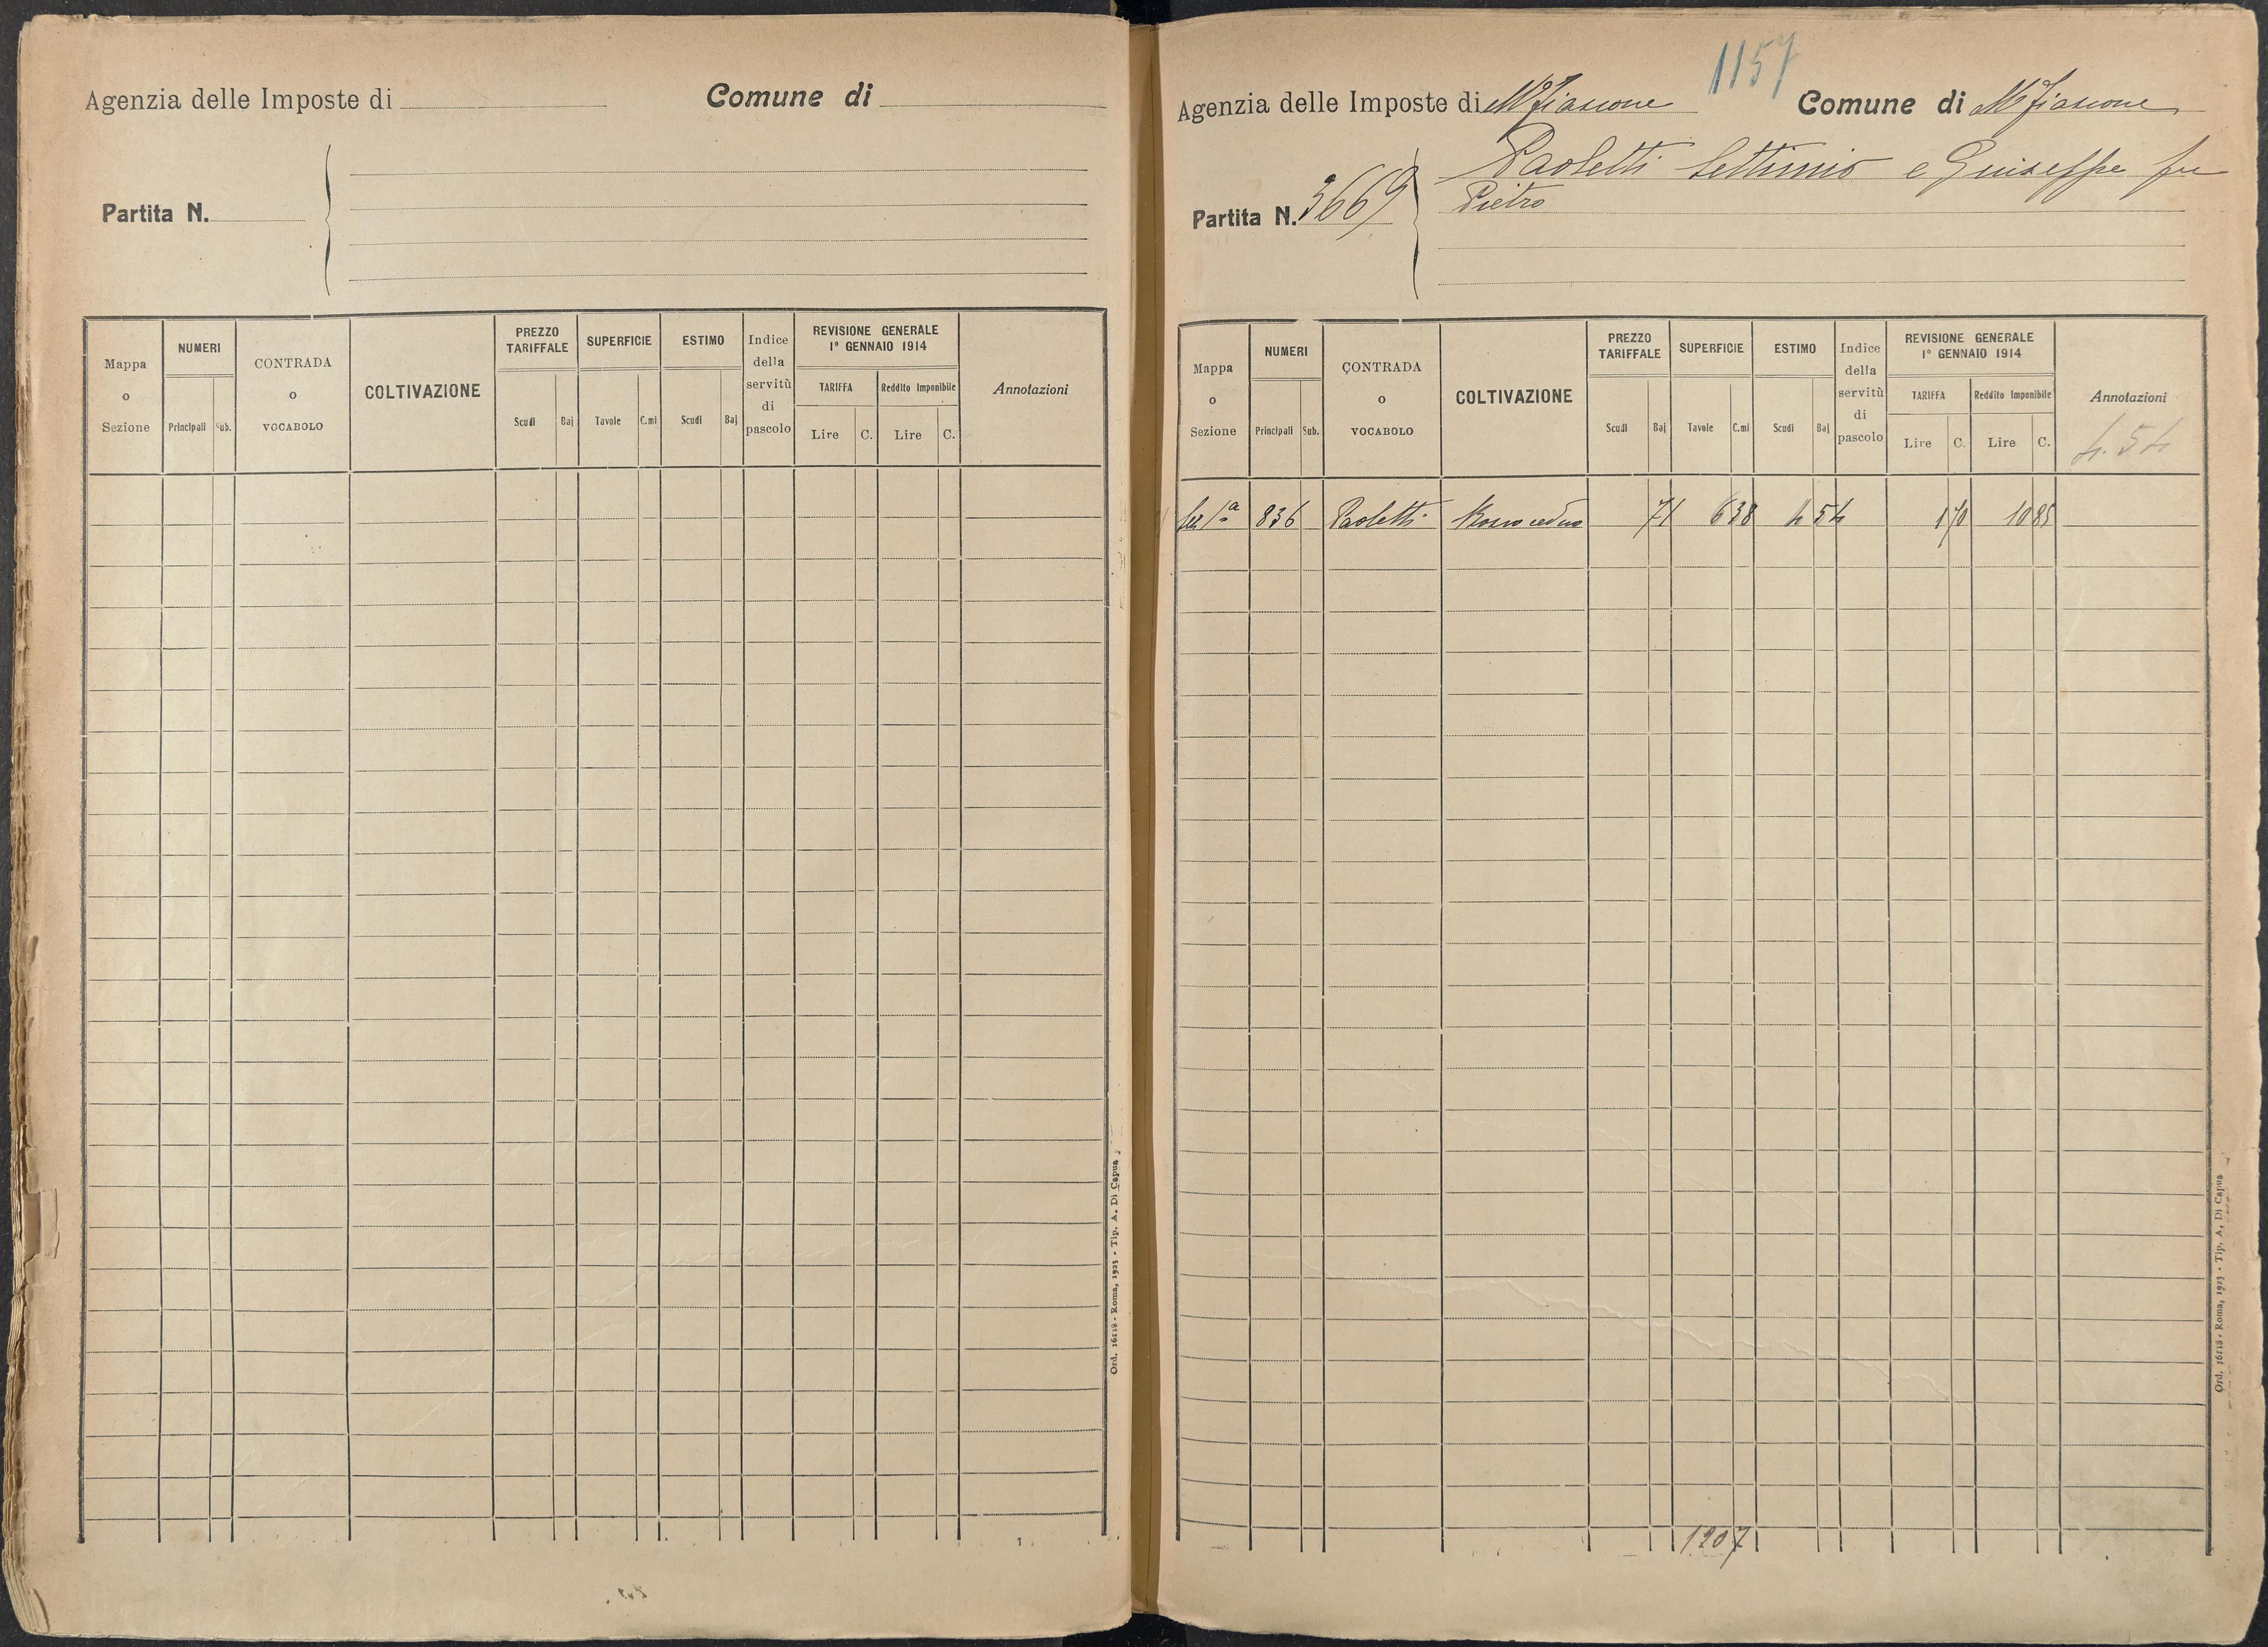 Agenzia delle Imposte di Comune di
Partita N.
Mappa o Sezione NUMERI Principali Sub. CONTRADA o VOCABOLO COLTIVAZIONE PREZZO TARIFFALE Scudi Baj SUPERFICIE Tavole C.mi ESTIMO Scudi Baj Indice della servitù di pascolo REVISIONE GENERALE 1º GENNAIO 1914 TARIFFA Lire C. Reddito Imponibile Lire C. Annotazioni
Ord. 16118 - Roma, 1923 - Tip. A. Di Capua
1157
Agenzia delle Imposte di M.Fiascone Comune di M.Fiascone
Paoletti Settimio e Giuseppe fu
Partita N. 3669 Pietro
Mappa o Sezione NUMERI Principali Sub. CONTRADA o VOCABOLO COLTIVAZIONE PREZZO TARIFFALE Scudi Baj SUPERFICIE Tavole C.mi ESTIMO Scudi Baj Indice della servitù di pascolo REVISIONE GENERALE 1º GENNAIO 1914 TARIFFA Lire C. Reddito Imponibile Lire C. Annotazioni
4.54
Sez 1ª 836 Paoletti Bosco ceduo 71 6 38 4 54 1 70 10 85
1207
Ord. 16118 - Roma, 1923 - Tip. A. Di Capua